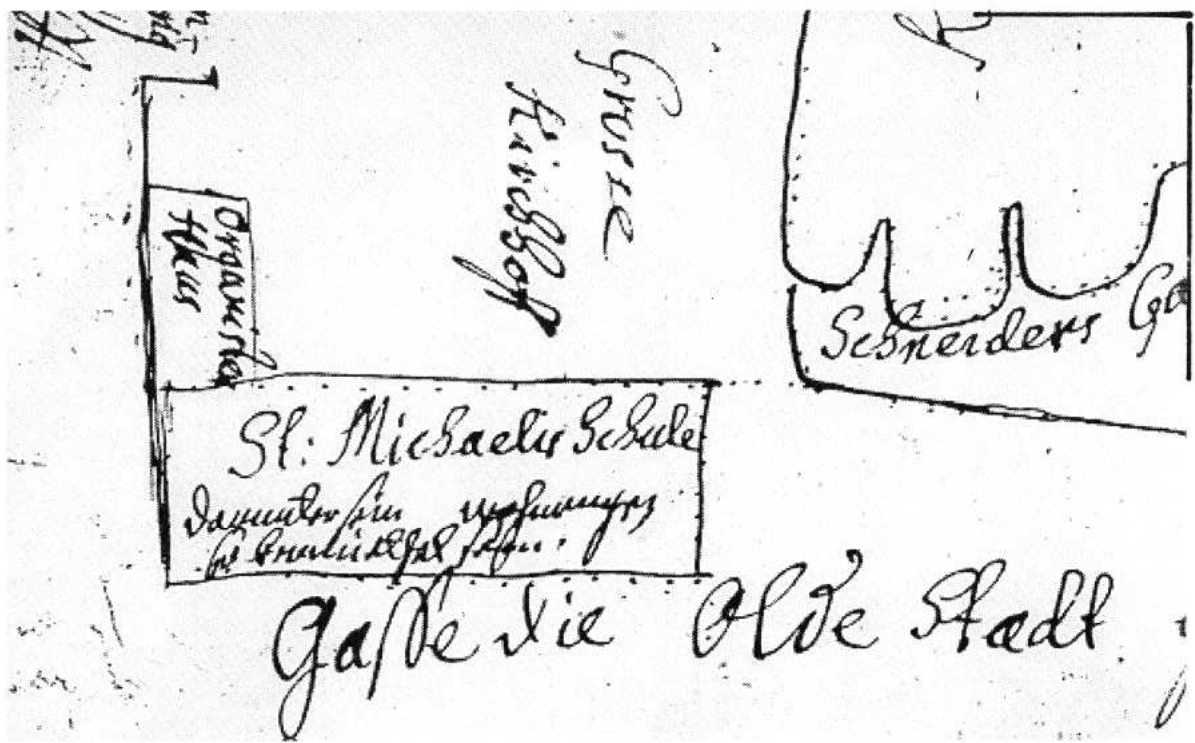 Grosse
Kirchhoff
Organisten
Haus
Schneiders
St: Michaelis Schule
darunter sein wohnungen
Gaße die Olde Stadt